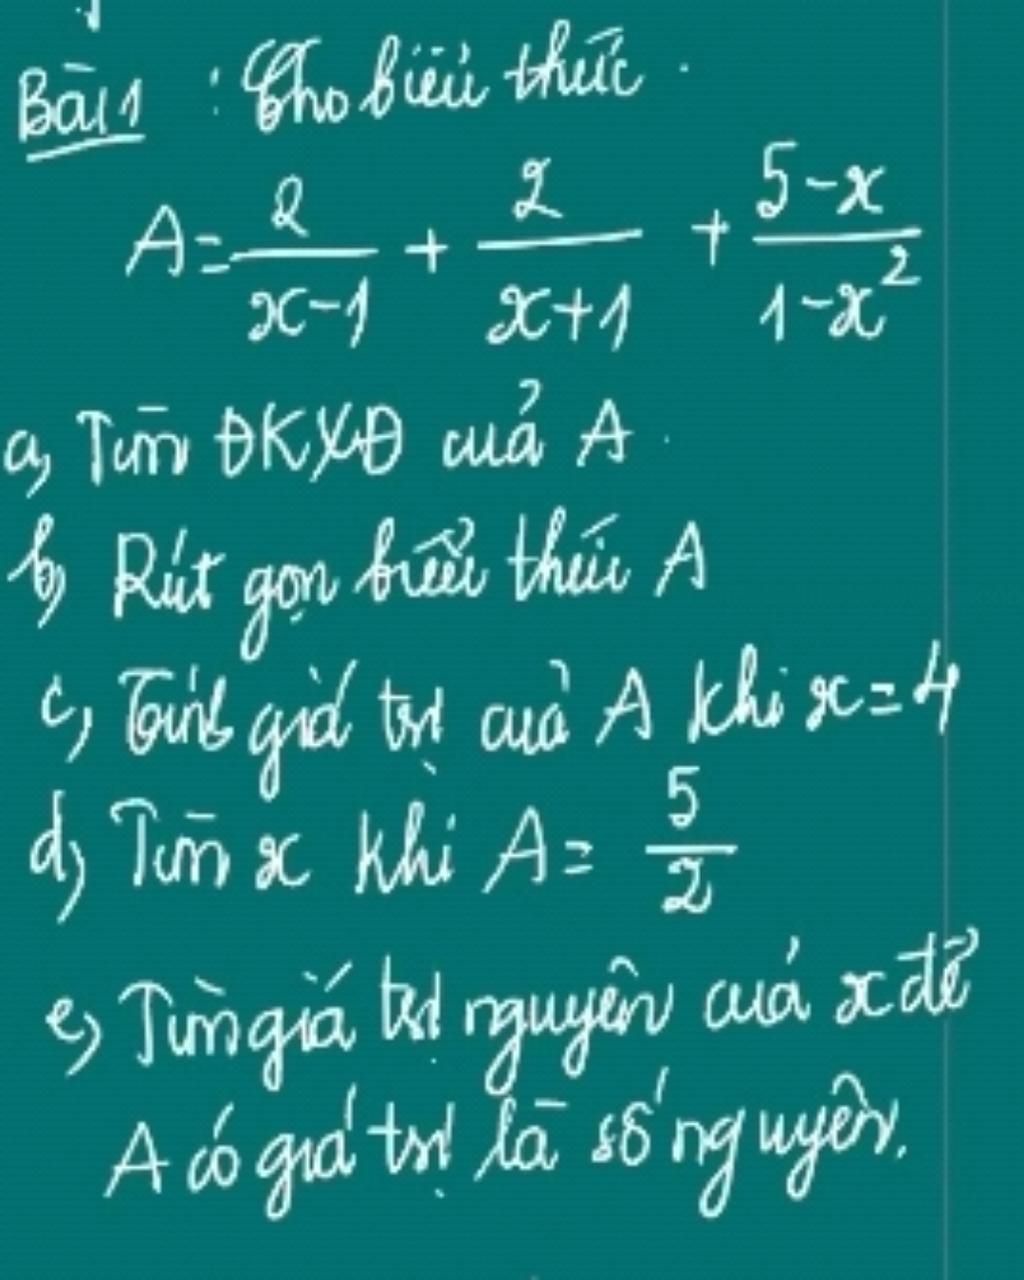 Bài 1 : Cho biểu thức.
A = 2/(x-1) + 2/(x+1) + (5-x)/(1-x²)
a, Tìm ĐKXĐ của A.
b, Rút gọn biểu thức A
c, Tính giá trị của A khi x = 4
d, Tìm x khi A = 5/2
e, Tìm giá trị nguyên của x để
A có giá trị là số nguyên.